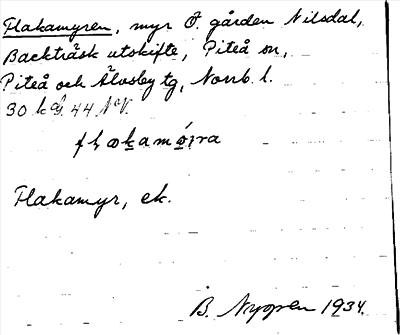 Flakamyren, myr Ö. gården Nilsdal,
Backträsk utskifte, Piteå sn,
Piteå och Älvsby tg, Norrb. l.
30 k G. 44 NV.
Flakamyr, ek.
B. Nygren 1934.